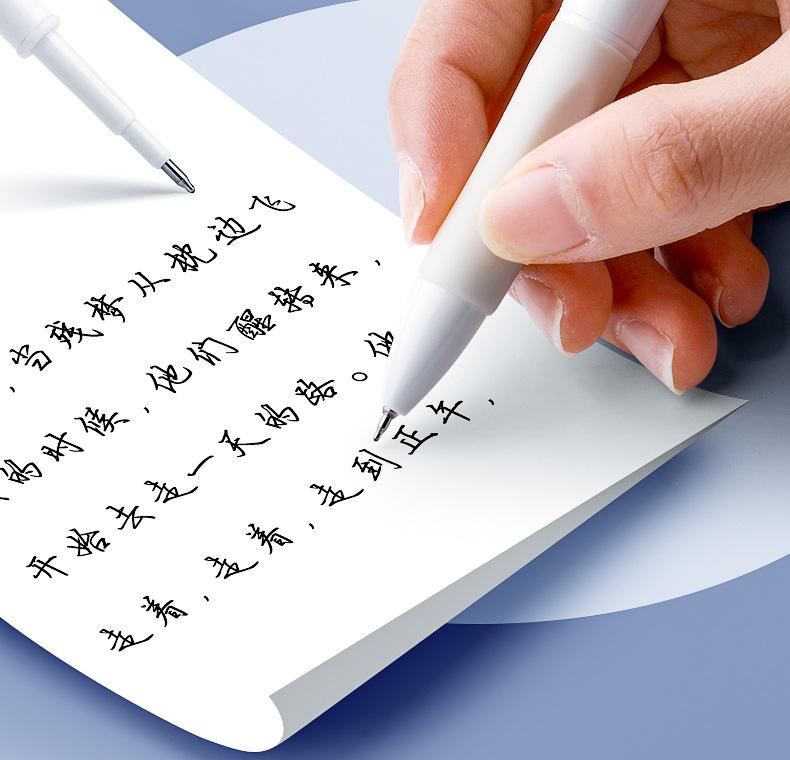 ，当残梦从枕边飞
的时候，他们醒转来，
开始去走一天的路。他
走着，走着，走到正午，